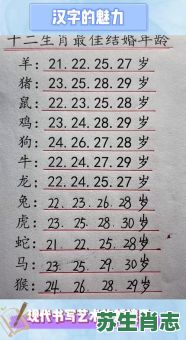 汉字的魅力
十二生肖最佳结婚年龄
羊：21.22.25.27 岁
猪：23.25.28.29 岁
鼠：22.23.25.28 岁
鸡：23.24.28.29 岁
狗：24.26.27.29 岁
牛：22.24.27.29 岁
龙：22.24.25.27 岁
兔：22.23.26.28 岁
虎：23.25.28.30 岁
蛇：21.22.25.28 岁
马：23.25.29.30 岁
猴：24.26.28.29 岁
现代书写艺术
苏生肖志